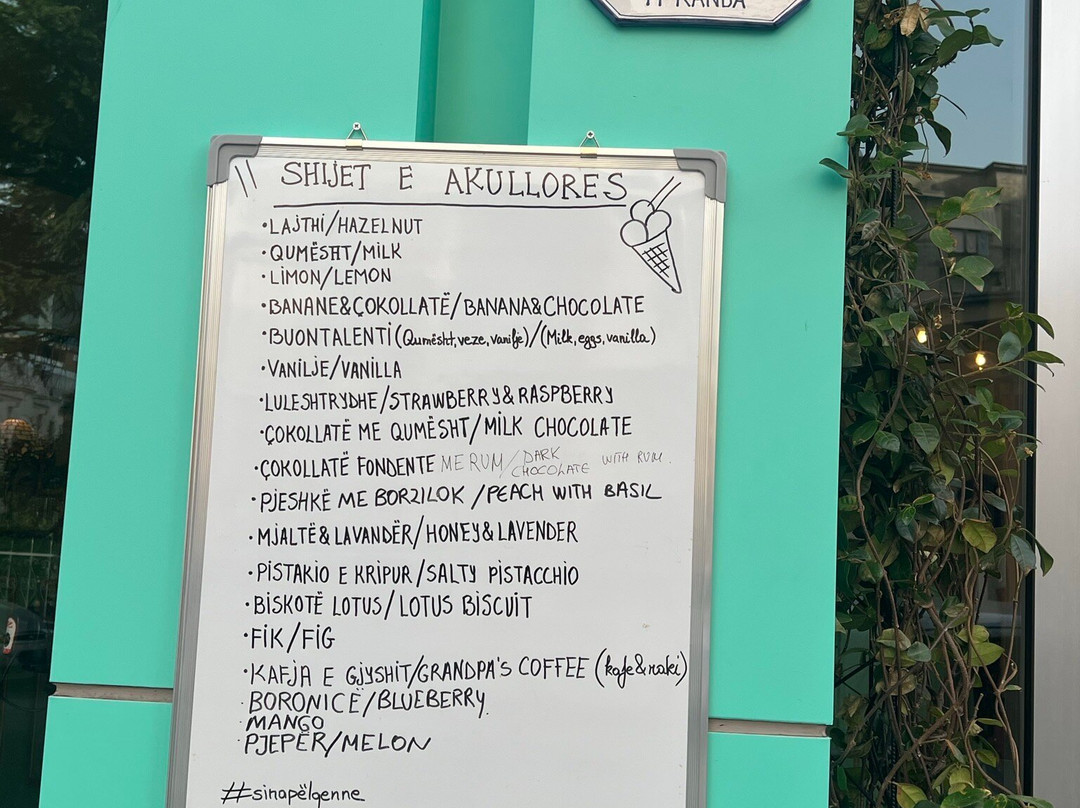 SHIJET E AKULLORES
•LAJTHI/HAZELNUT
•QUMËSHT/MILK
•LIMON/LEMON
•BANANE&ÇOKOLLATË/BANANA&CHOCOLATE
•BUONTALENTI(Qumësht,veze,vanilje)/(Milk,eggs,vanilla)
•VANILJE/VANILLA
•LULESHTRYDHE/STRAWBERRY&RASPBERRY
•ÇOKOLLATË ME QUMËSHT/MILK CHOCOLATE
•ÇOKOLLATË FONDENTE ME RUM/DARK CHOCOLATE WITH RUM.
•PJESHKË ME BORZILOK/PEACH WITH BASIL
•MJALTË&LAVANDËR/HONEY&LAVENDER
•PISTAKIO E KRIPUR/SALTY PISTACCHIO
•BISKOTË LOTUS/LOTUS BISCUIT
•FIK/FIG
•KAFJA E GJYSHIT/GRANDPA'S COFFEE (kafe&raki)
•BORONICË/BLUEBERRY.
•MANGO
•PJEPËR/MELON
#sinapëlqenne